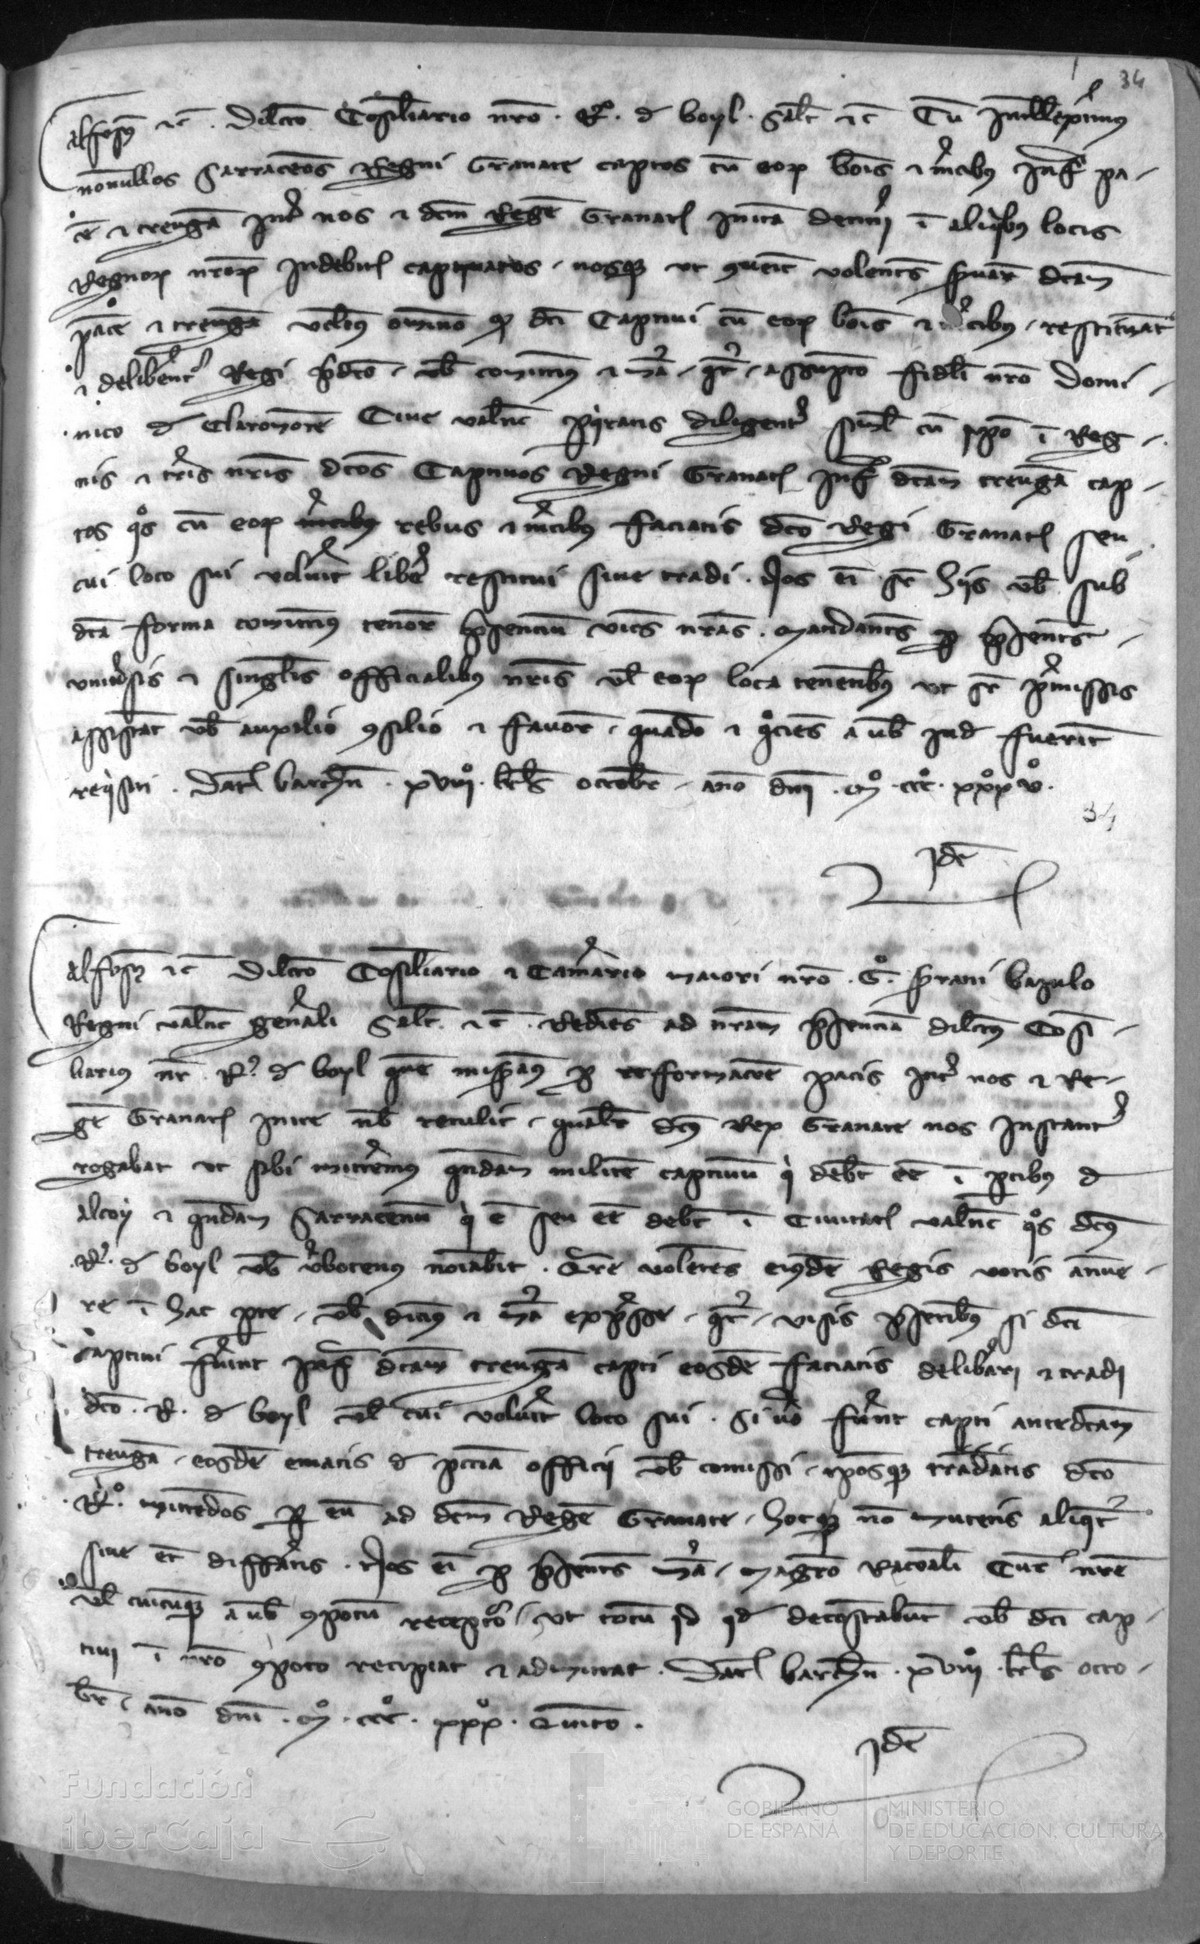 34
Alfonsus etc. Dilecto Consiliario nostro R. de Boyl Salutem etc. Cum intelleximus
nonnullos Sarracenos Regni Granate captos cum eorum bonis et mercibus infra pa-
cem et treugam inter nos et dictum Regem Granate initam detineri in aliquibus locis
Regnorum nostrorum indebite captivatos nosque ut convenit volentes servare dictam
pacem et treugam velimus omnino quod dicti Captivi cum eorum bonis et mercibus restituantur
et deliberentur Regi predicto vobis committimus et mandamus quatenus assumpto fideli nostro Domi-
nico de Claromonte Cive Valencie perquiratis diligenter simul cum ipso in Reg-
nis et terris nostris dictos Captivos Regni Granate infra dictam treugam cap-
tos quos cum eorum rebus et mercibus faciatis dicto Regi Granate seu
cui loco sui voluerit libere restitui sive tradi. Nos enim super hiis vobis sub
dicta forma committimus tenore presencium vices nostras. mandantes per presentes
universis et singulis officialibus nostris vel eorum loca tenentibus ut super premissis
assistant vobis auxilio consilio et favore quando et quociens a vobis inde fuerint
requisiti. Datum Barchinone XVIII kalendas octobris anno domini M CCC XXX V.
34
Idem
Alfonsus etc. Dilecto Consiliario et Camerario maiori nostro G. Serrani baiulo
Regni Valencie generali Salutem etc. Rediens ad nostram presenciam dilectus Consi-
liarius noster R. de Boyl quem miseramus pro reformacione pacis inter nos et Re-
gem Granate inite nobis retulit qualiter dictus Rex Granate nos instanter
rogabat ut sibi mitteremus quendam militem captivum qui debet esse in partibus de
Alcoy et quendam Sarracenum qui est seu esse debet in Civitate Valencie quos dictus
R. de Boyl vobis verbotenus nominabit. Quare volentes eiusdem Regis votis annue-
re in hac parte vobis dicimus et mandamus expresse quatenus visis presentibus si dicti
captivi fuerint post dictam treugam capti eosdem faciatis deliberari et tradi
dicto R. de Boyl vel cui voluerit loco sui. Si vero fuerint capti ante dictam
treugam eosdem ematis de pecunia officii vobis comissi ipsosque tradatis dicto
R. mittendos per eum ad dictum Regem Granate hocque non mutetis aliquatenus
sive eciam differatis. Nos enim per presentes mandamus magistro racionali Curie nostre
vel cuicumque a vobis compotum recepturo ut totum id quod decostabunt vobis dicti cap-
tivi in vestro compoto recipiat et admittat. Datum Barchinone XVIII kalendas octo-
bris anno domini M CCC XXX Quinto.
Idem
Fundación
iberCaja
GOBIERNO
DE ESPAÑA
MINISTERIO
DE EDUCACIÓN, CULTURA
Y DEPORTE